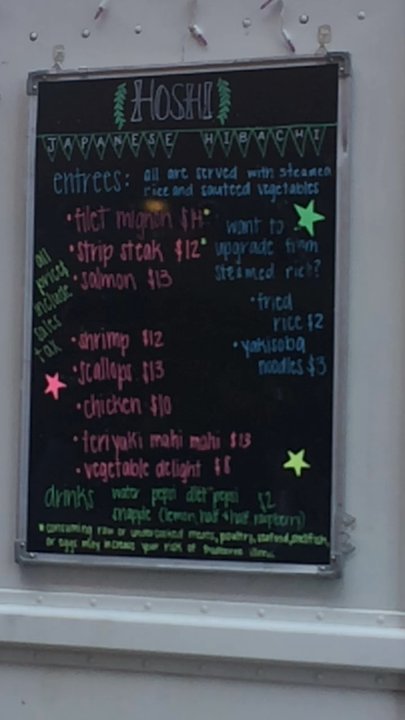 HOSHI
JAPANESE HIBACHI
entrees: all are served with steamed
rice and sauteed vegetables
• filet mignon $14*
• strip steak $12*
• salmon $13
• shrimp $12
• scallops $13
• chicken $10
• teriyaki mahi mahi $13
• vegetable delight $8
all
prices
include
sales
tax
want to
upgrade from
steamed rice?
• fried
rice $2
• yakisoba
noodles $3
drinks water pepsi diet pepsi $2
snapple (lemon, half & half, raspberry)
* consuming raw or undercooked meats, poultry, seafood, shellfish,
or eggs may increase your risk of foodborne illness.